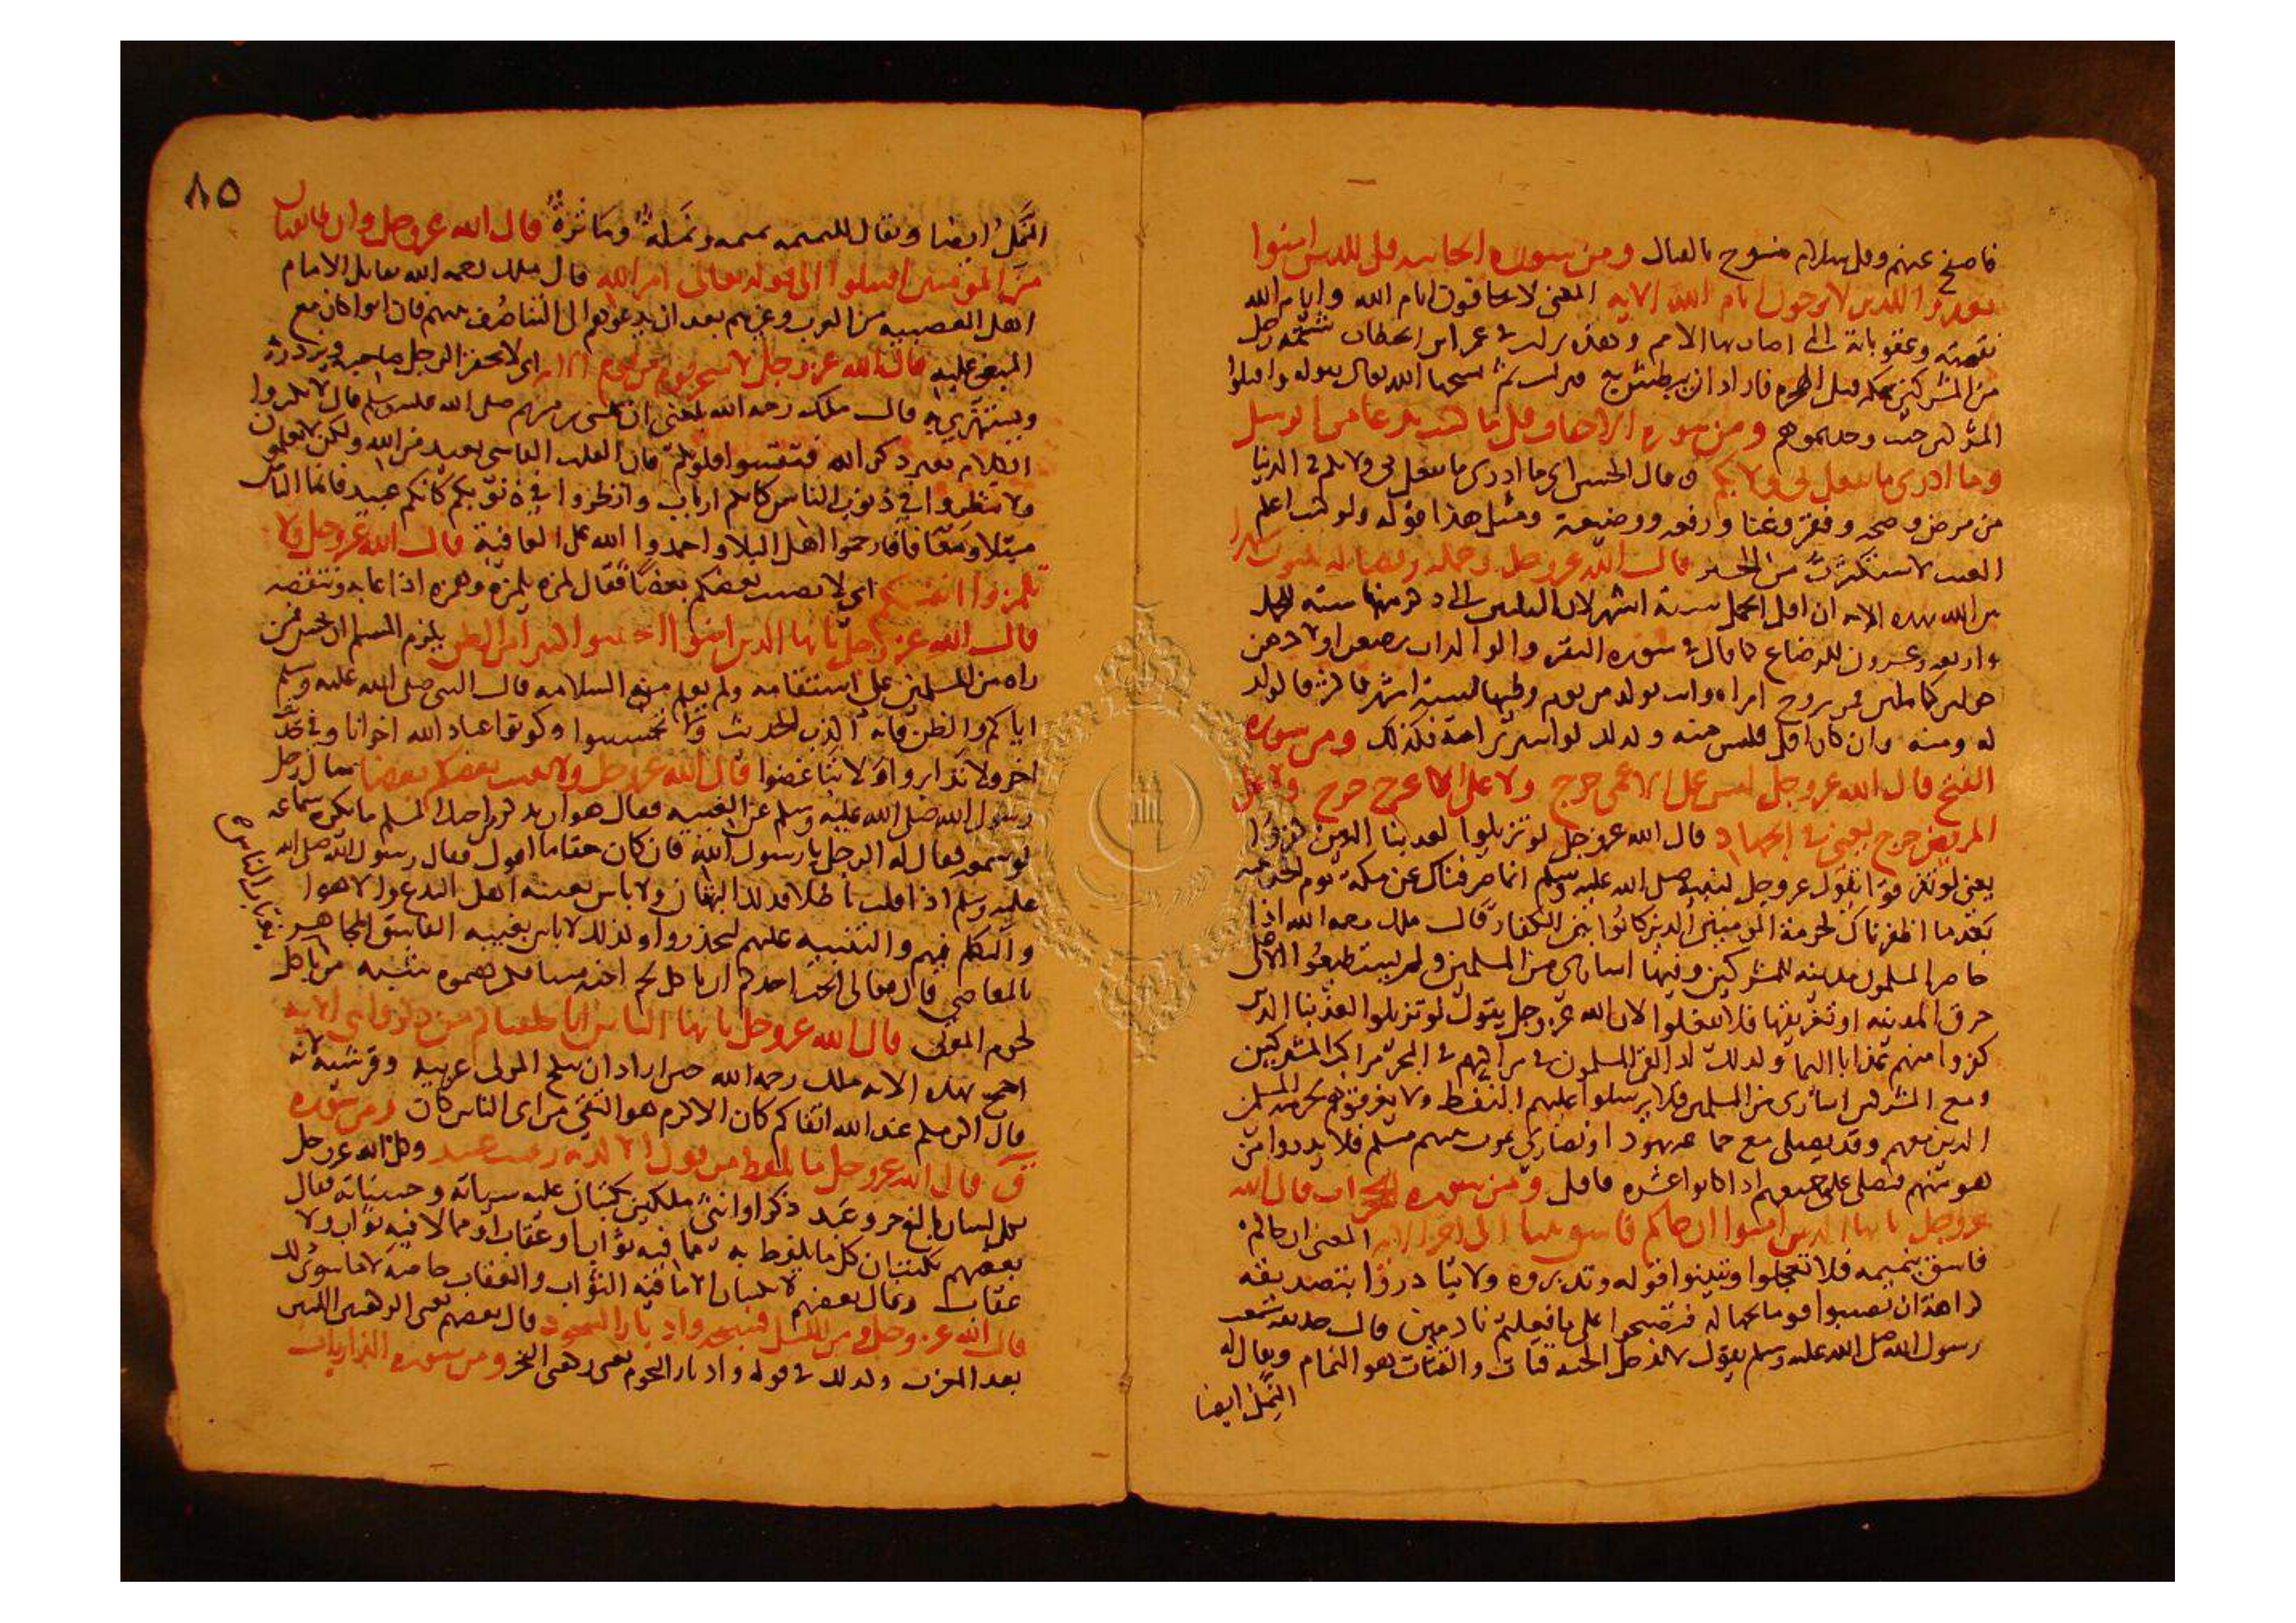 فاصفح عنهم وقل سلام منسوخ بالقتال ومن سورة الجاثية قل للذين امنوا
يغفروا للذين لا يرجون ايام الله الاية المعنى لا يخافون ايام الله وايام الله
نقمته وعقوباته التي اصاب بها الامم وهذه نزلت في عمر ابن الخطاب شتمه رجل
من المشركين بمكة قبل الهجرة فاراد ان يبطش به فنزلت ثم نسخها الله تعالى بقوله واقتلوا
المشركين حيث وجدتموهم ومن سورة الاحقاف قل ما كنت بدعا من الرسل
وما ادري ما يفعل بي ولا بكم قال الحسن اي ما ادري ما يفعل بي ولا بكم في الدنيا
من مرض وصحة وفقر وغنا ورفعة ووضيعة ومثل هذا قوله ولو كنت اعلم
الغيب لاستكثرت من الخير قال الله عز وجل وحمله وفصاله ثلثون شهرا
بين الله بهذه الاية ان اقل الحمل ستة اشهر لان الثلثين التي ذكر منها ستة للحمل
واربعة وعشرون للرضاع كما قال في سورة البقرة والوالدات يرضعن اولادهن
حولين كاملين فمن تزوج امراة واتت بولد من يوم وطيها لستة اشهر فاكثر فالولد
له ومنه وان كان اقل فليس منه وكذلك لو اشترى امة فكذلك ومن سورة
الفتح قال الله عز وجل ليس على الاعمى حرج ولا على الاعرج حرج ولا على
المريض حرج يعني في الجهاد قال الله عز وجل لو تزيلوا لعذبنا الذين كفروا
يعني لو تفرقوا يقول عز وجل لنبيه صلى الله عليه وسلم انما صرفناك عن مكة يوم الحديبية
بعد ما اظفرناك لحرمة المومنين الذين كانوا بين الكفار قال ملك رحمه الله اذا
حاصر المسلمون مدينة للمشركين وفيها اسارى من المسلمين ولم يستطيعوا الا على
حرق المدينة او تغريقها فلا يفعلوا لان الله عز وجل يقول لو تزيلوا لعذبنا الذين
كفروا منهم عذابا اليما وكذلك اذا لقى المسلمون في مراكبهم في البحر مراكب المشركين
ومع المشركين اسارى من المسلمين فلا يرسلوا عليهم النفط ولا يغرقوهم لحرمة المسلمين
الذين معهم وقد يصلى مع جماعة يهود او نصارى يموت منهم مسلم فلا يدروا من
هو منهم فيصلى على جميعهم اذا كانوا عشرة فاقل ومن سورة الحجرات قال الله
عز وجل يا ايها الذين امنوا ان جاكم فاسق بنبا الى اخر الاية المعنى ان جاكم
فاسق بنميمه فلا تعجلوا وتبينوا قوله وتدبروه ولا تبادروا بتصديقه
كراهة ان تصيبوا قوما بجهالة فتصبحوا على ما فعلتم نادمين قال حذيفة سمعت
رسول الله صلى الله عليه وسلم يقول لا يدخل الجنة قتات والقتات هو النمام ويقال له
النمل ايضا
٨٥
النمل ايضا ويقال للنميمه نميمه ونملة ومَاثرة قال الله عز وجل وان طايفتان
من المومنين اقتتلوا الى قوله تعالى امر الله قال ملك رحمه الله يقاتل الامام
اهل العصبية من العرب وغيرهم بعد ان يدعوهم الى التناصف بينهم فان ابوا كان مع
المبغي عليه قال الله عز وجل لا يسخر قوم من قوم الاية اي لا يحقر الرجل صاحبه ويزدريه
ويستهزي به قال ملك رحمه الله بلغني ان عيسى بن مريم صلى الله عليه وسلم قال لا تكثروا
الكلام بغير ذكر الله فتقسوا قلوبكم فان القلب القاسي بعيد من الله ولكن لا تعلمون
ولا تنظروا في ذنوب الناس كانكم ارباب وانظروا في ذنوبكم كانكم عبيد فانما الناس
مبتلا ومعافا فارحموا اهل البلا واحمدوا الله على العافية قال الله عز وجل ولا
تلمزوا انفسكم اي لا يعيب بعضكم بعضا فقال لمزه يلمزه وهمزه اذا عابه وتنقصه
قال الله عز وجل يا ايها الذين امنوا اجتنبوا كثيرا من الظن يلزم المسلم ان يحسن ظن
راه من المسلمين على استقامه ولم يعلم منه السلامه قال النبي صلى الله عليه وسلم
اياكم والظن فانه اكذب الحديث ولا تحسسوا وكونوا عباد الله اخوانا وفي حديث
اخر ولا تدابروا ولا تباغضوا قال الله عز وجل ولا يغتب بعضكم بعضا سال رجل
رسول الله صلى الله عليه وسلم عن الغيبه فقال هو ان يذكر من اخيك المسلم ما يكره سماعه
لو سمعه فقال له الرجل يا رسول الله فان كان حقا ما اقول فقال رسول الله صلى الله
عليه وسلم اذا قلت باطلا فذلك البهتان ولا باس بغيبة اهل البدع والاهوا
والتكلم فيهم والتنبيه عليهم ليحذروا وكذلك لا باس بغيبة الفاسق المجاهر
بالمعاصي قال تعالى ايحب احدكم ان ياكل لحم اخيه ميتا فكرهتموه
لحوم الموتى قال الله عز وجل يا ايها الناس انا خلقناكم من ذكر وانثى الاية
احتج بهذه الاية ملك رحمه الله حين اراد ان ينكح المولى عربية وقرشية لانه
قال اكرمكم عند الله اتقاكم كان الاكرم هو التقي من اي الناس كان ومن سورة
ق قال الله عز وجل ما يلفظ من قول الا لديه رقيب عتيد وكل الله عز وجل
بكل انسان ذكرا او انثى ملكين يكتبان عليه سياته وحسناته فقال
بعضهم يكتبان كل ما يلفظ به مما فيه ثواب او عقاب او مما لا فيه ثواب ولا
عقاب وقال بعضهم لا يكتبان الا ما فيه الثواب والعقاب خاصة لا ما سوى ذلك
قال الله عز وجل ومن الليل فسبحه وادبار السجود قال بعضهم يعني الركعتين اللتين
بعد المغرب وكذلك في قوله وادبار النجوم يعني ركعتي الفجر ومن سورة الذاريات